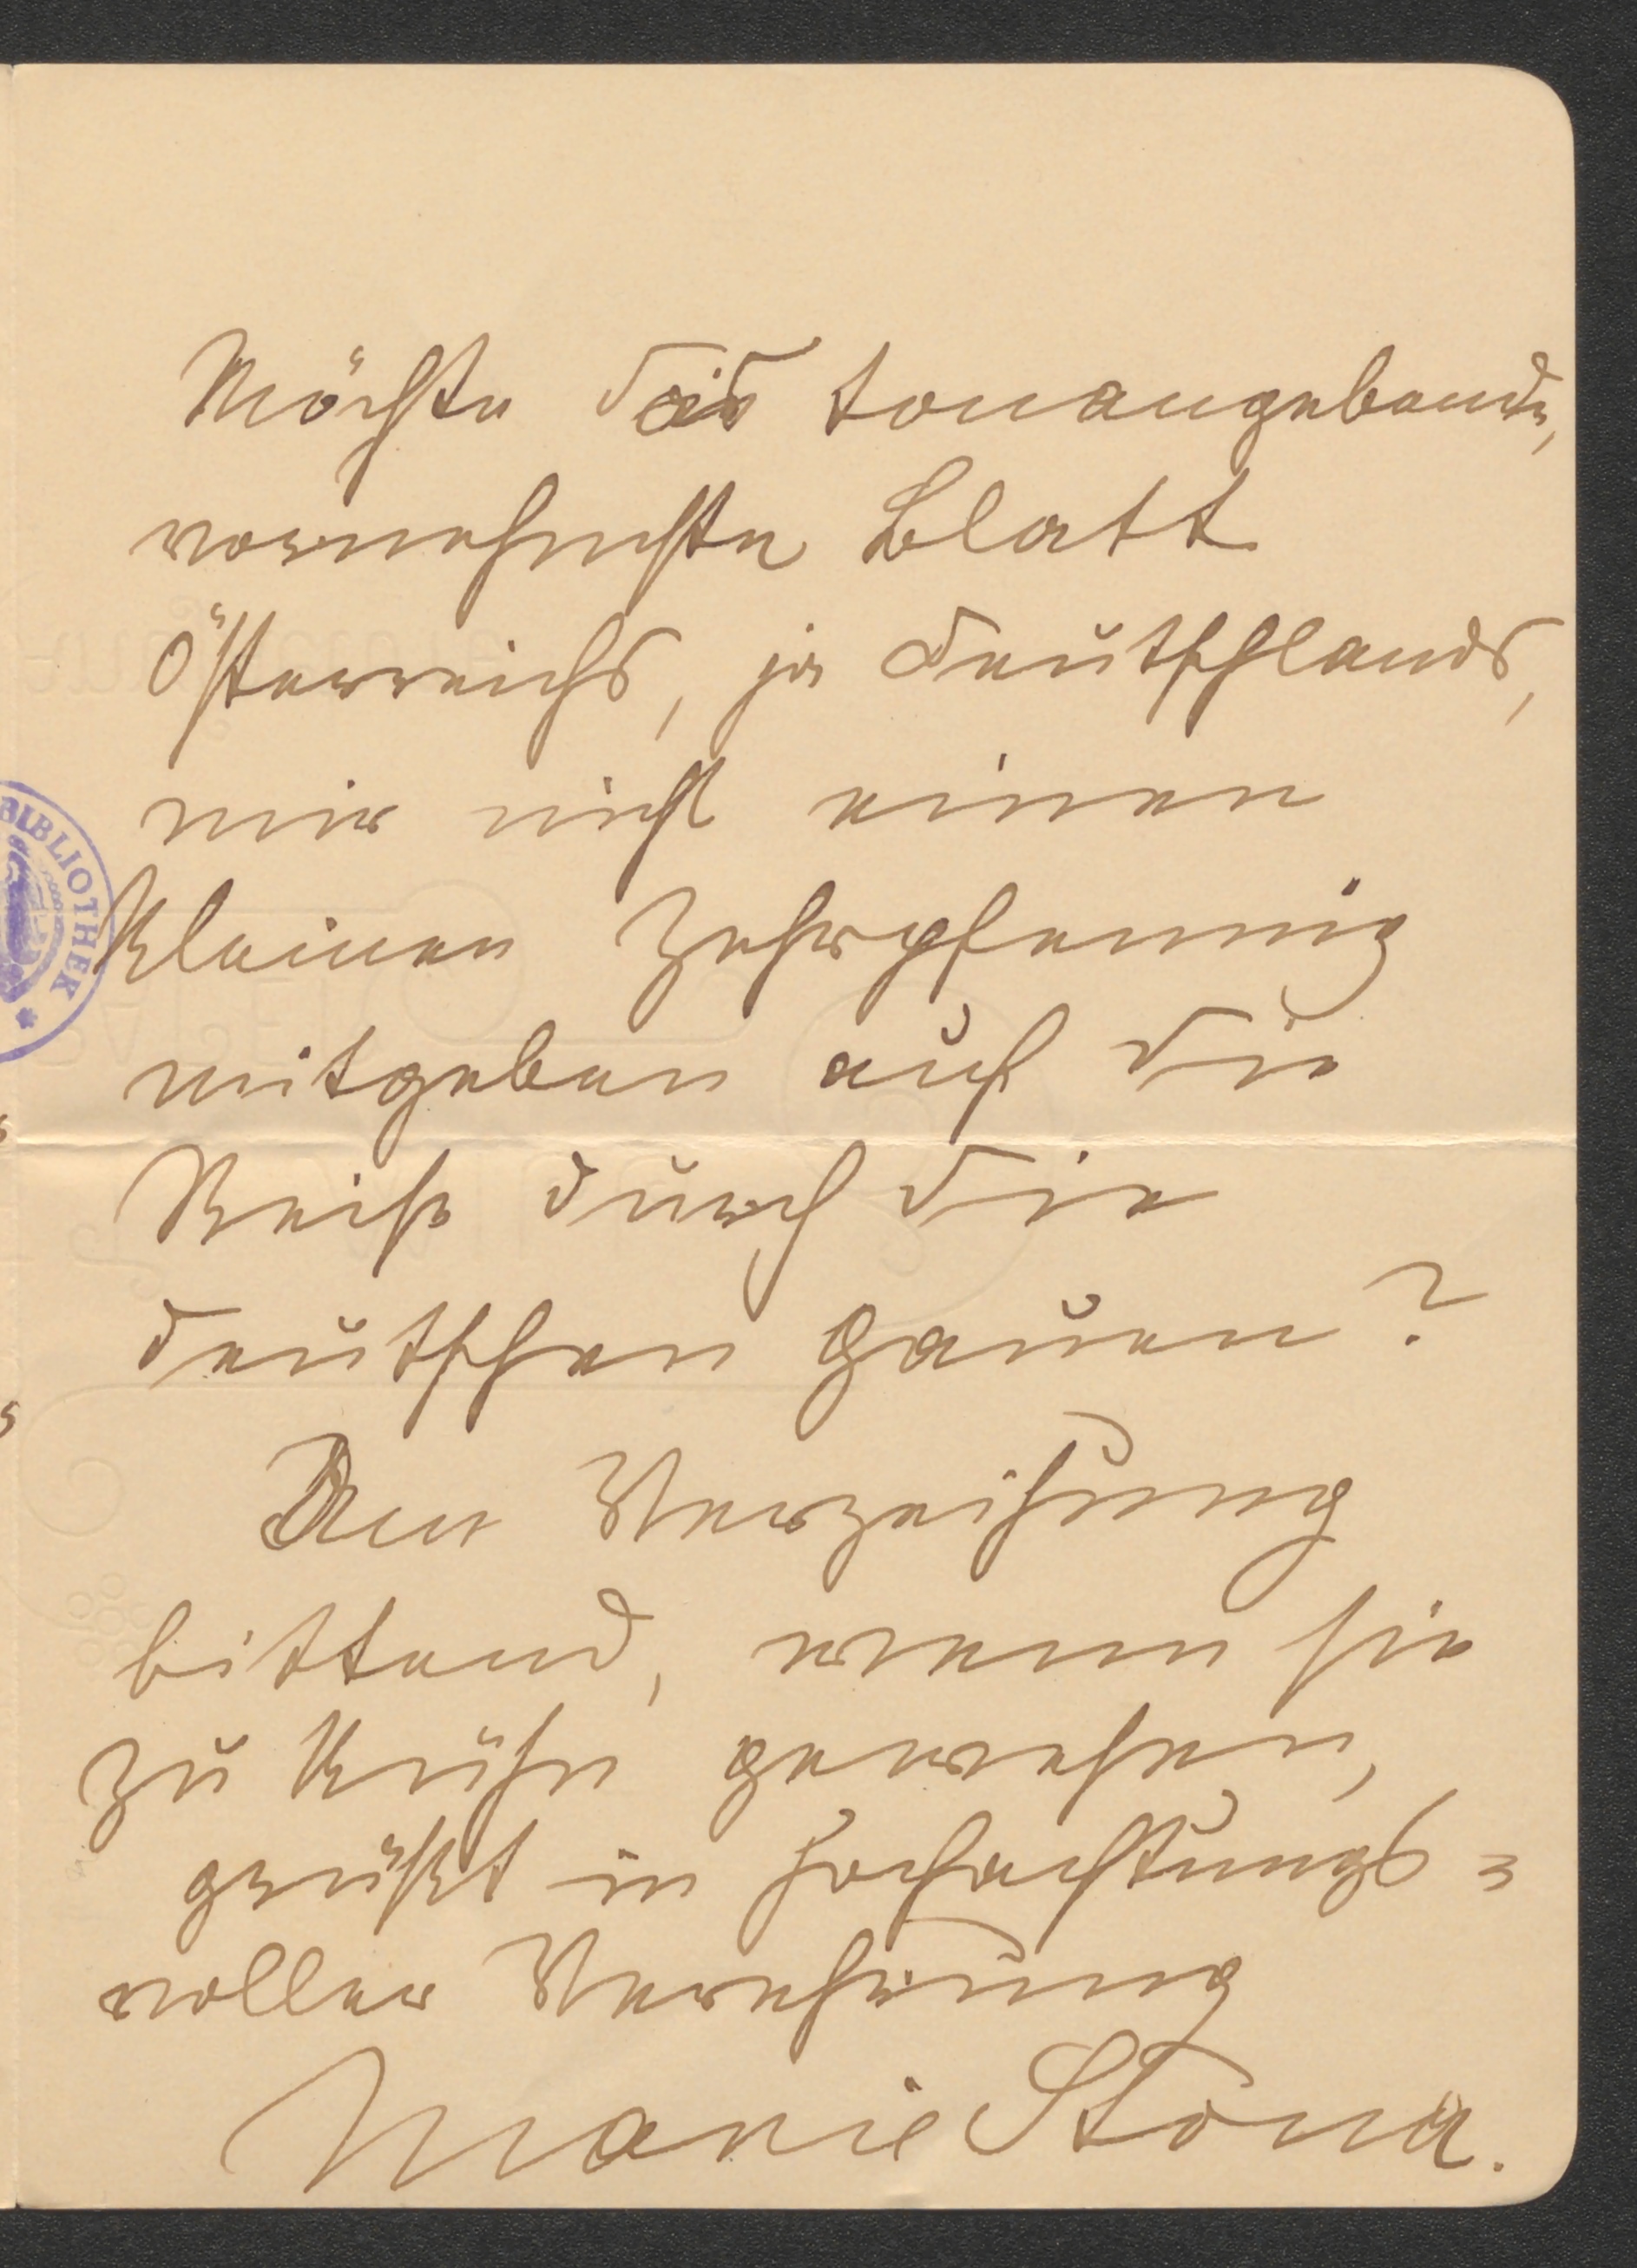 Möchte das tonangebende,
vornehmste Blatt
Österreichs, ja Deutschlands,
mir nicht einen
kleinen Zehrpfennig
mitgeben auf die
Reise durch die
deutschen Gauen?
Um Verzeihung
bittend, wenn sie
zu kühn gewesen,
grüßt in hochachtungs=
voller Verehrung
Marie Stona.
BIBLIOTHEK